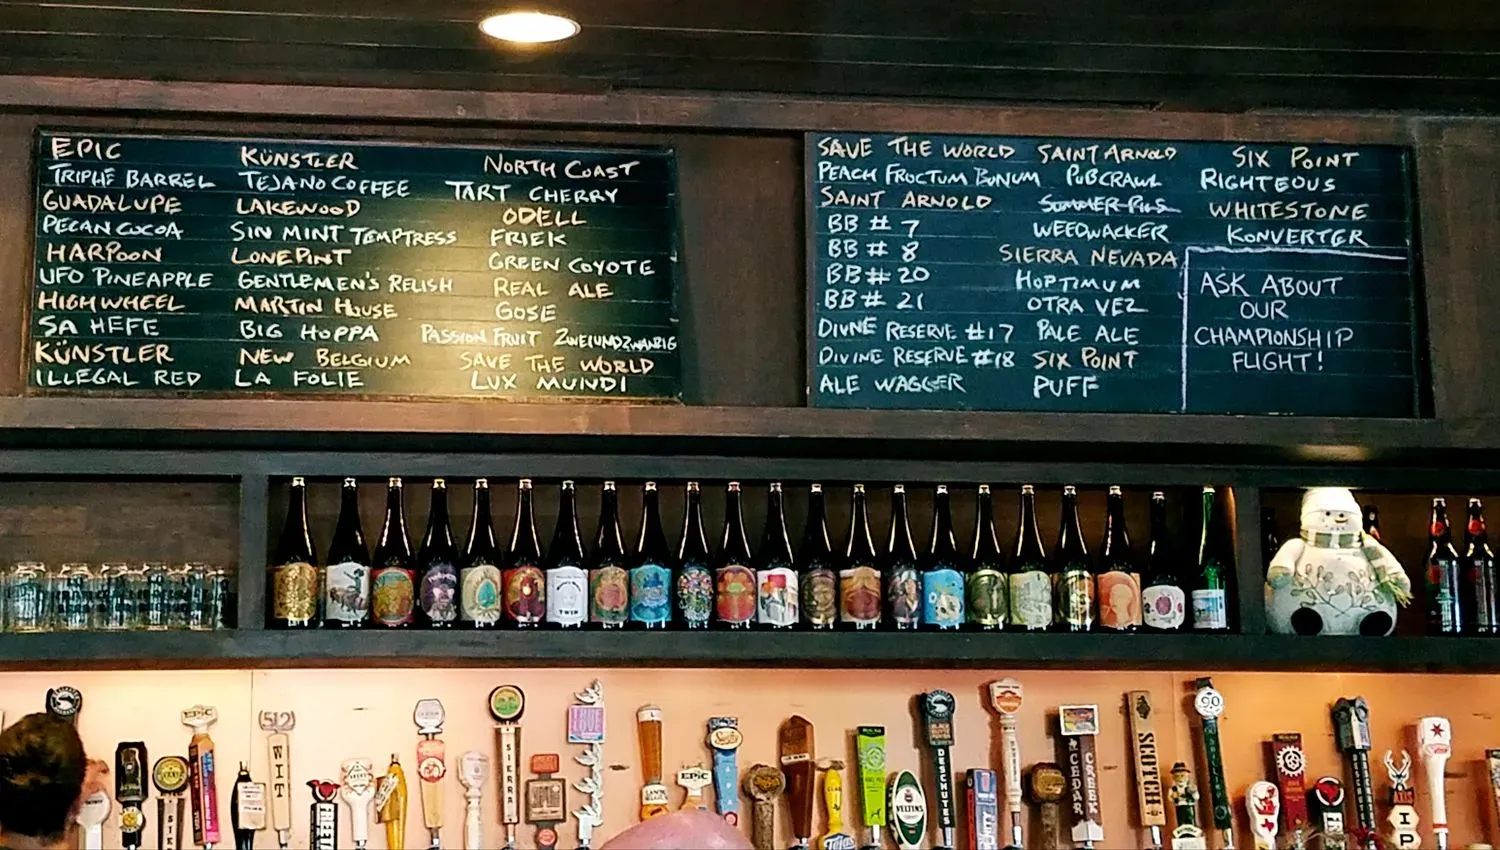 EPIC
TRIPLE BARREL
GUADALUPE
PECAN COCOA
HARPOON
UFO PINEAPPLE
HIGHWHEEL
SA HEFE
KÜNSTLER
ILLEGAL RED
KÜNSTLER
TEJANO COFFEE
LAKEWOOD
SIN MINT TEMPTRESS
LONEPINT
GENTLEMEN'S RELISH
MARTIN HOUSE
BIG HOPPA
NEW BELGIUM
LA FOLIE
NORTH COAST
TART CHERRY
ODELL
FRIEK
GREEN COYOTE
REAL ALE
GOSE
PASSION FRUIT ZWEIUNDZWANZIG
SAVE THE WORLD
LUX MUNDI
SAVE THE WORLD
PEACH FROCTUM BONUM
SAINT ARNOLD
BB # 7
BB # 8
BB # 20
BB # 21
DIVINE RESERVE #17
DIVINE RESERVE #18
ALE WAGGER
SAINT ARNOLD
PUBCRAWL
SUMMER PILS
WEEDWACKER
SIERRA NEVADA
HOPTIMUM
OTRA VEZ
PALE ALE
SIX POINT
PUFF
SIX POINT
RIGHTEOUS
WHITESTONE
KONVERTER
ASK ABOUT
OUR
CHAMPIONSHIP
FLIGHT!
TWIN
EPIC
512
WIT
SIERRA
TRUE
LOVE
EPIC
VELTINS
DESCHUTES
CEDAR
CREEK
SCOTCH
90
IP